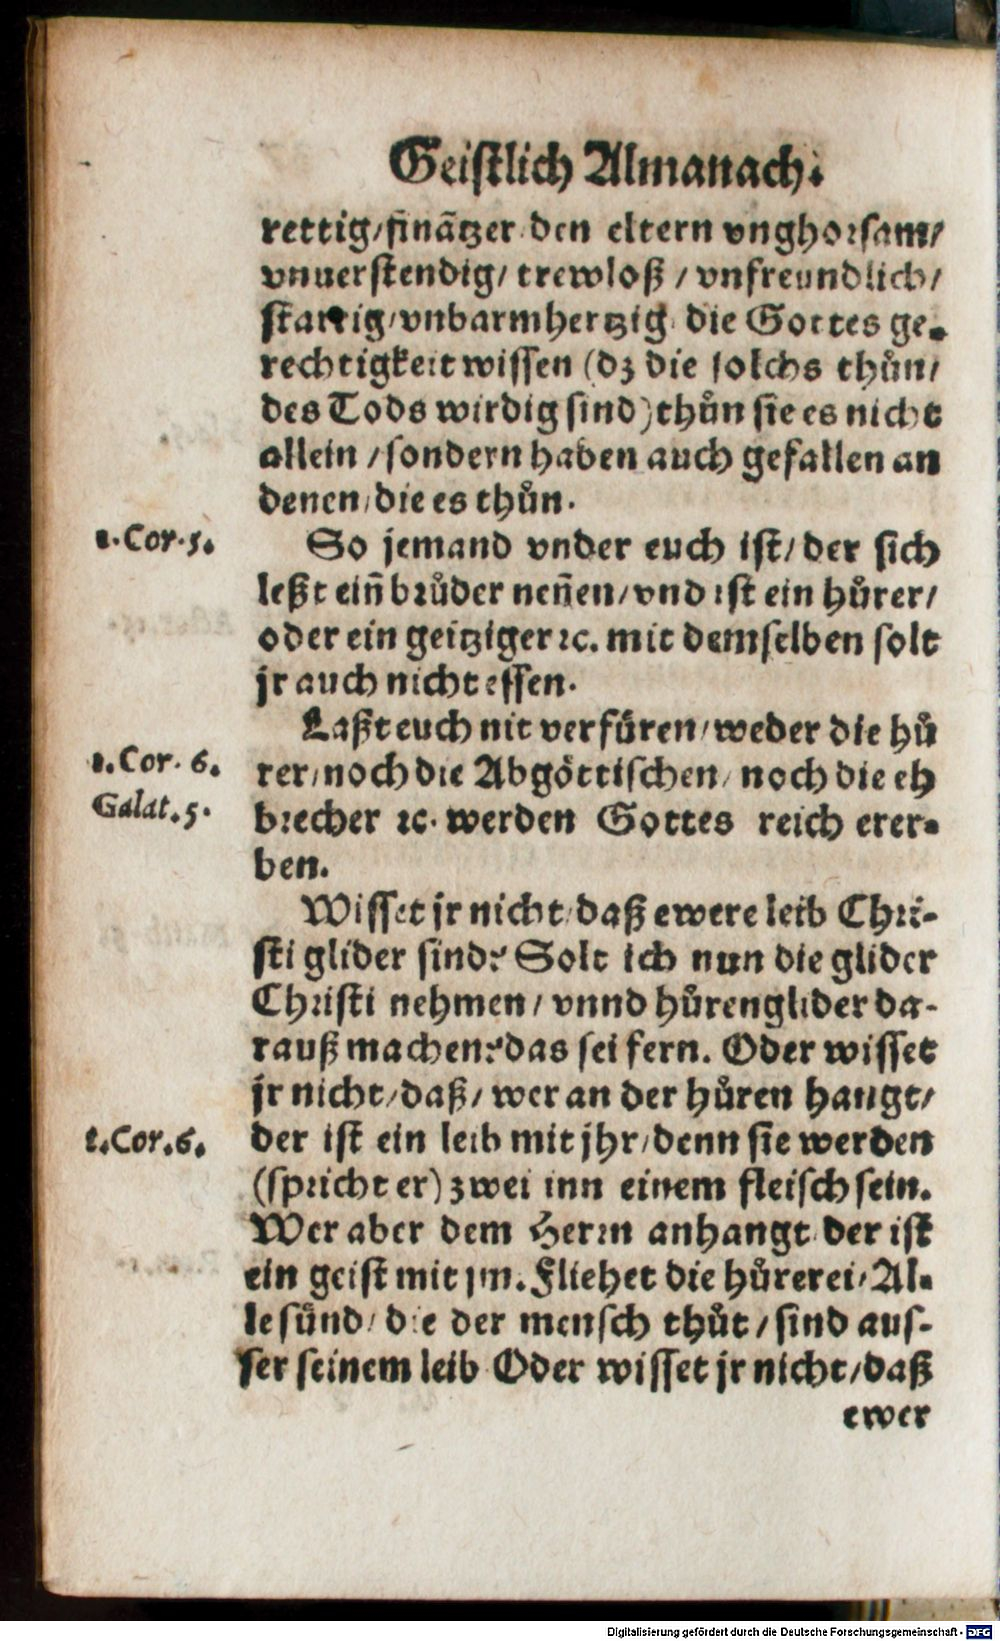 Geistlich Almanach.
rettig/finãtzer den eltern vnghorsam/
vnuerstendig/ trewloß / vnfreundlich/
starrig/vnbarmhertzig die Gottes ge-
rechtigkeit wissen (dz die solchs thůn/
des Tods wirdig sind) thůn sie es nicht
allein / sondern haben auch gefallen an
denen/die es thůn.
1.Cor.5.
So jemand vnder euch ist/ der sich
leßt ein̄ brůder nen̄en/vnd ist ein hůrer/
oder ein geitziger ꝛc. mit demselben solt
jr auch nicht essen.
Laßt euch nit verfüren/weder die hů
1.Cor. 6.
rer/noch die Abgöttischen/ noch die eh
Galat.5.
brecher ꝛc. werden Gottes reich erer-
ben.
Wisset jr nicht/daß ewere leib Chri-
sti glider sind? Solt ich nun die glider
Christi nehmen/ vnnd hůrenglider da-
rauß machen? das sei fern. Oder wisset
jr nicht/daß/ wer an der hůren hangt/
1.Cor.6.
der ist ein leib mit jhr/denn sie werden
(spricht er) zwei inn einem fleisch sein.
Wer aber dem Herrn anhangt der ist
ein geist mit jm. Fliehet die hůrerei/Al-
le sünd/ die der mensch thůt / sind aus-
ser seinem leib Oder wisset jr nicht/daß
ewer
Digitalisierung gefördert durch die Deutsche Forschungsgemeinschaft - DFG